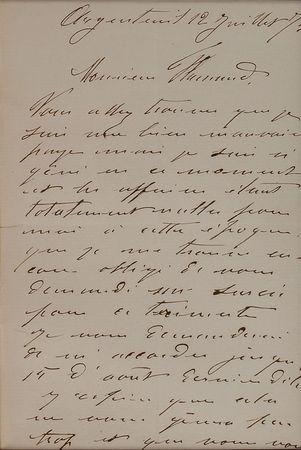 Argenteuil 12 Juillet 7
Monsieur
Vous allez trouver que je
suis un bien mauvais
paye mais je suis si
gêné en ce moment
et les affaires étant
totalement nulles pour
moi à cette époque
que je me trouve en
core obligé de vous
demander un sursis
pour ce terme
je vous demanderai
de m'accorder jusqu
15 d'août dernier délai
j'espère que cela
ne vous gênera pas
trop et que vous vou